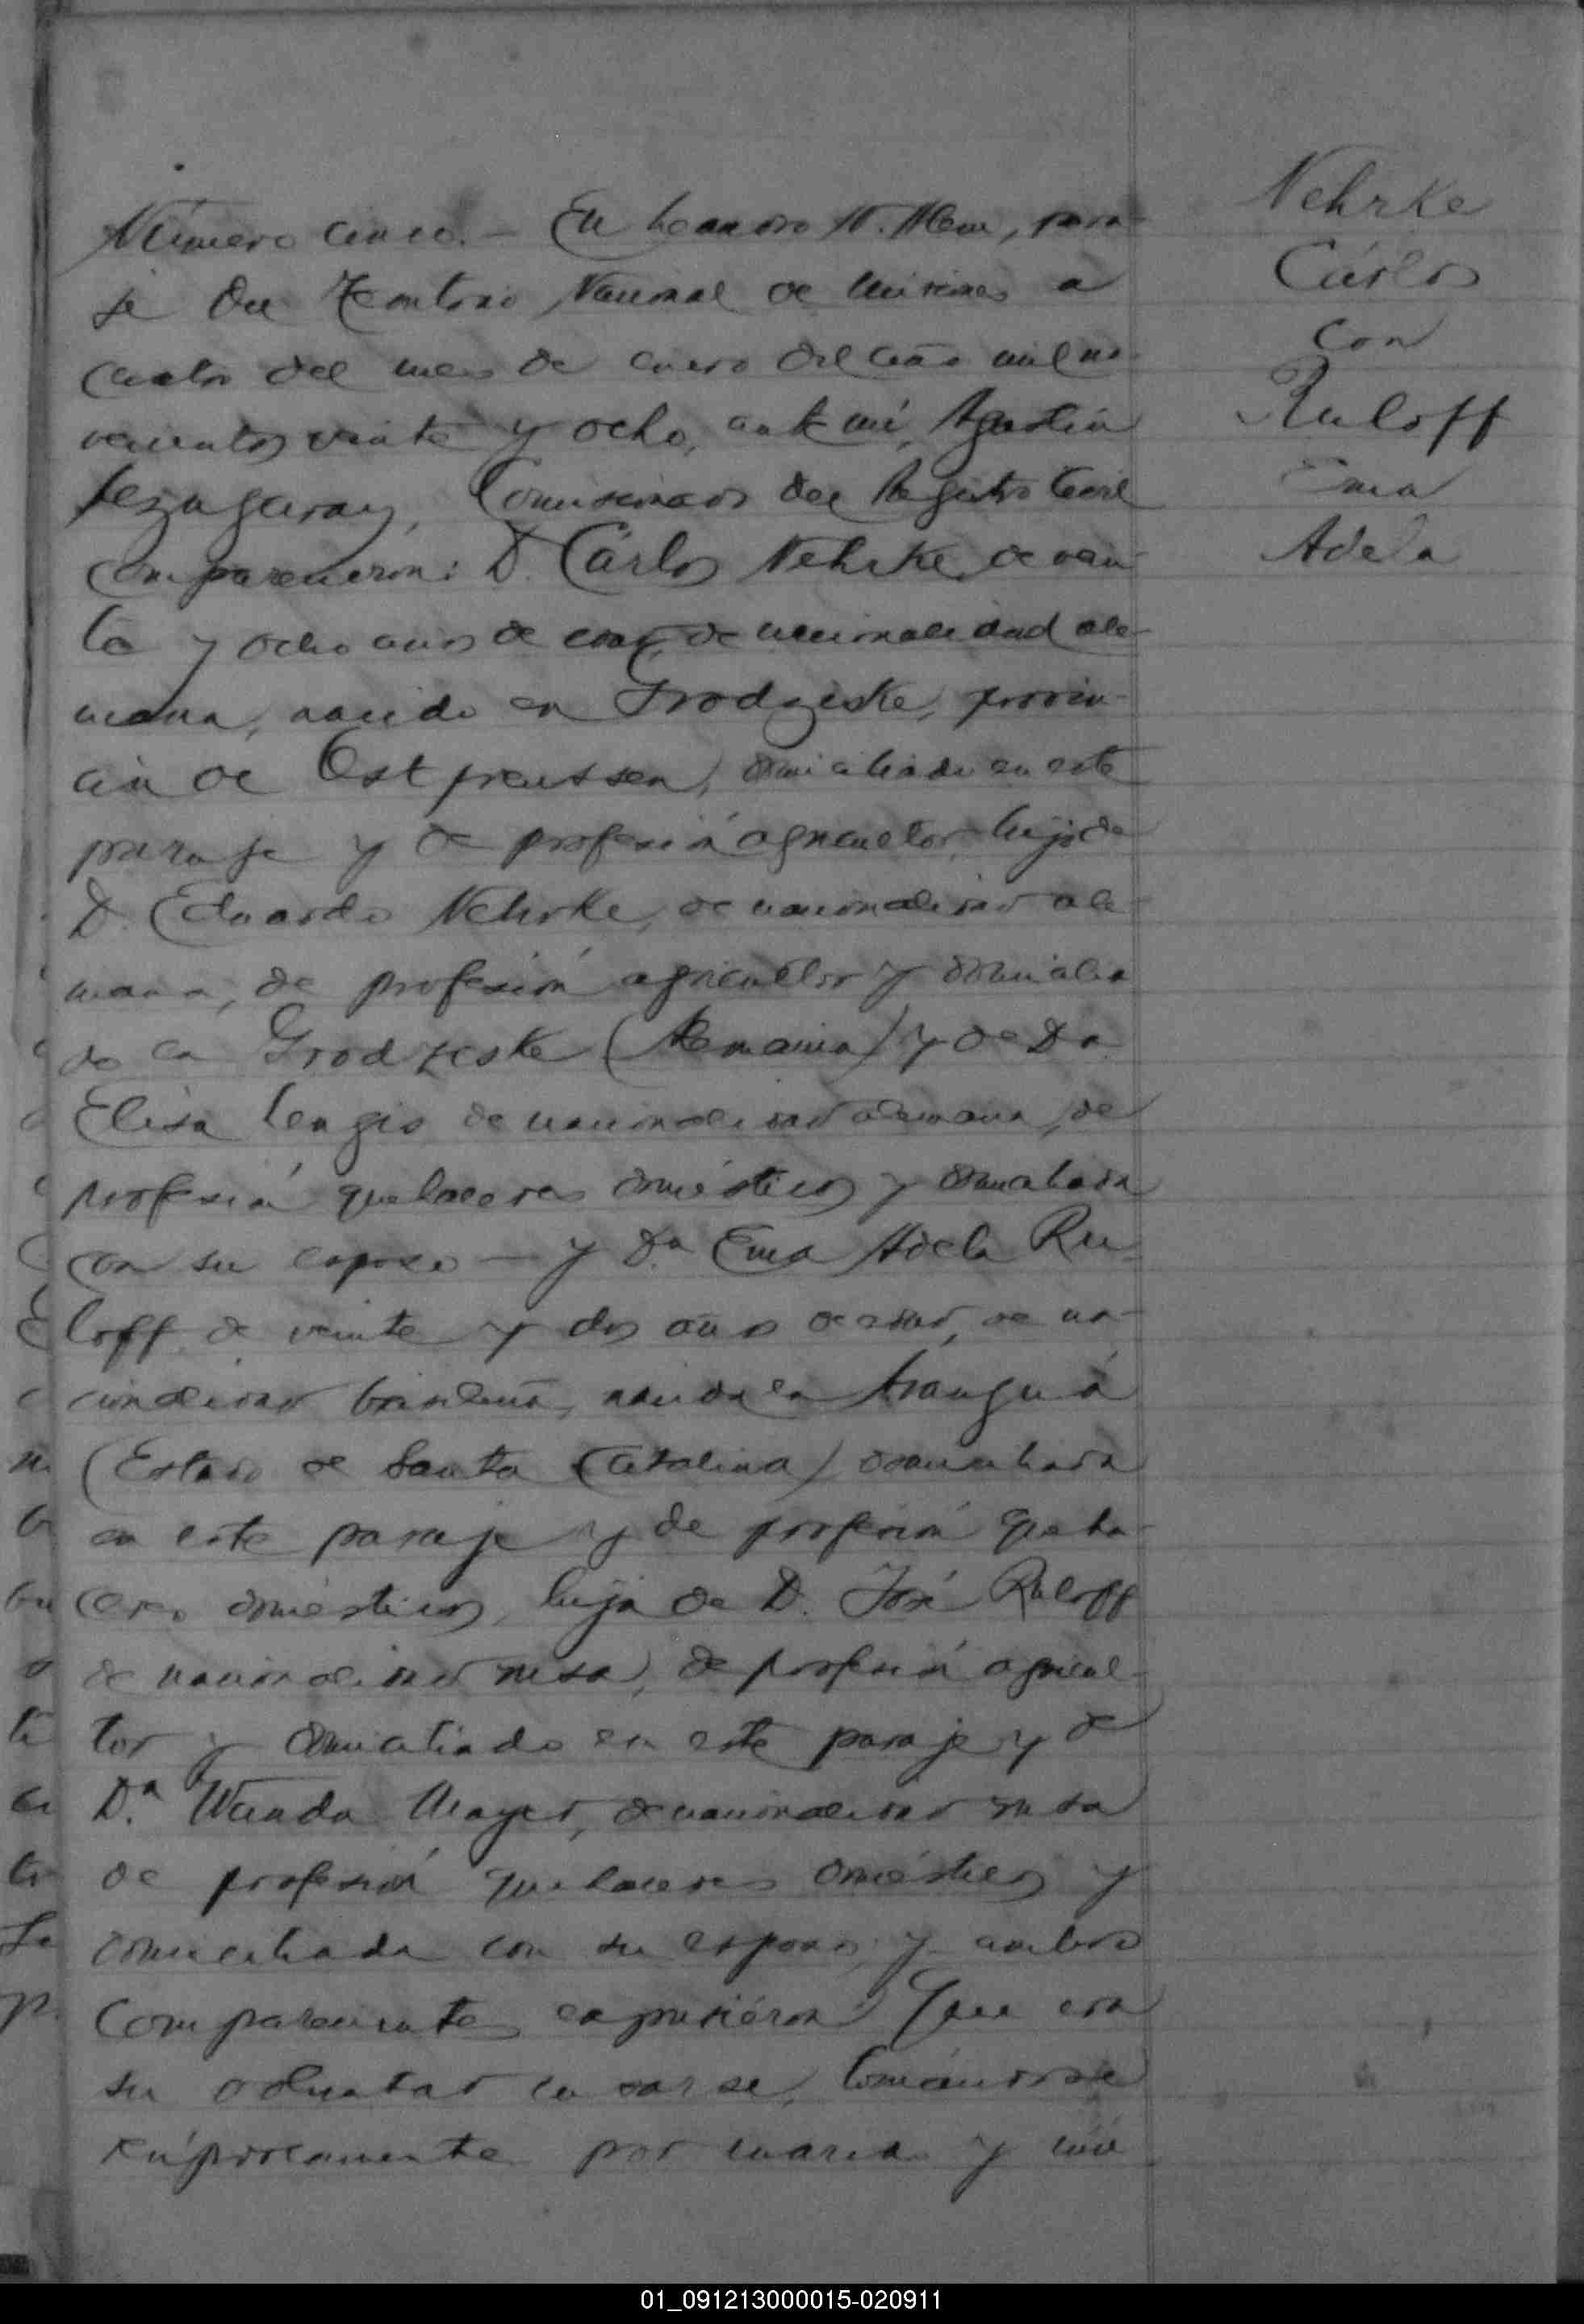 Número cinco. – En Leandro N. Alem, para-
je del Territorio Nacional de Misiones a
cuatro del mes de enero del año mil no-
vecientos veinte y ocho, ante mí, Agustín
Comisionado del Registro Civil
comparecieron: D. Cárlos Nehrke, de vein-
te y ocho años de edad, de nacionalidad ale-
mana, nacido en Grodzeske, provin-
cia de Ost preussen, domiciliado en este
paraje y de profesión agricultor, hijo de
D. Eduardo Nehrke, de nacionalidad ale-
mana, de profesión agricultor y domicilia
do en Grodzeske (Alemania) y de Da.
Elisa de nacionalidad alemana, de
profesión quehaceres domésticos y domiciliada
con su esposo – y Da. Ema Adela Ru-
loff de veinte y dos años de edad, de na-
cionalidad brasileña, nacida en
(Estado de Santa Catalina) domiciliada
en este paraje y de profesión queha-
ceres domésticos, hija de D. José Ruloff
de nacionalidad rusa, de profesión agricul-
tor y domiciliado en este paraje y de
D.ª Wanda Mayer, de nacionalidad rusa
de profesión quehaceres domésticos y
domiciliada con su esposo, y ambos
comparecientes expusieron: Que era
su voluntad casarse, tomándose
recíprocamente por marido y mu
Nehrke
Cárlos
con
Ruloff
Ema
Adela
01_091213000015-020911